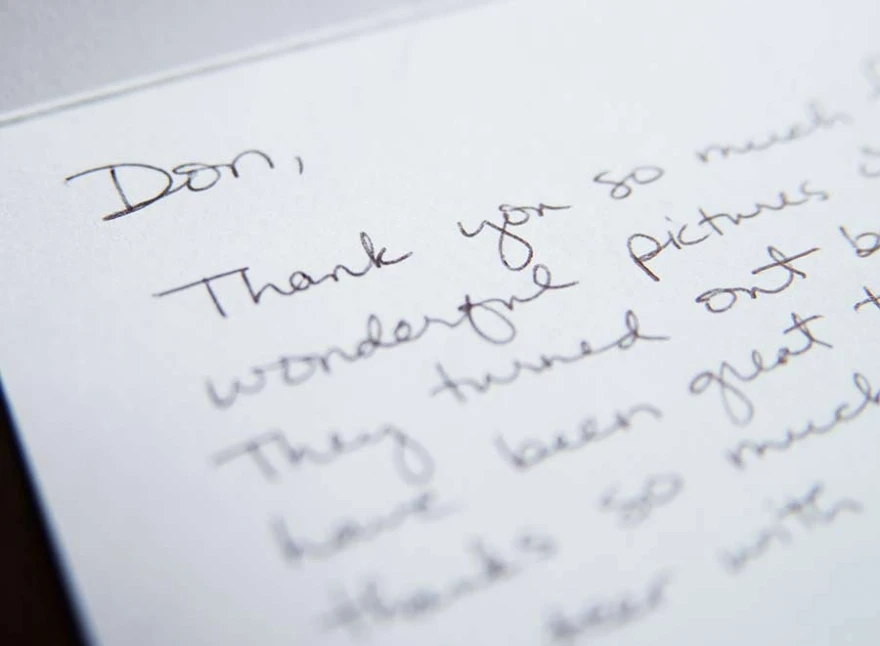 Don,
Thank you so much
wonderful pictures
They turned out
have been great
thanks so much
with